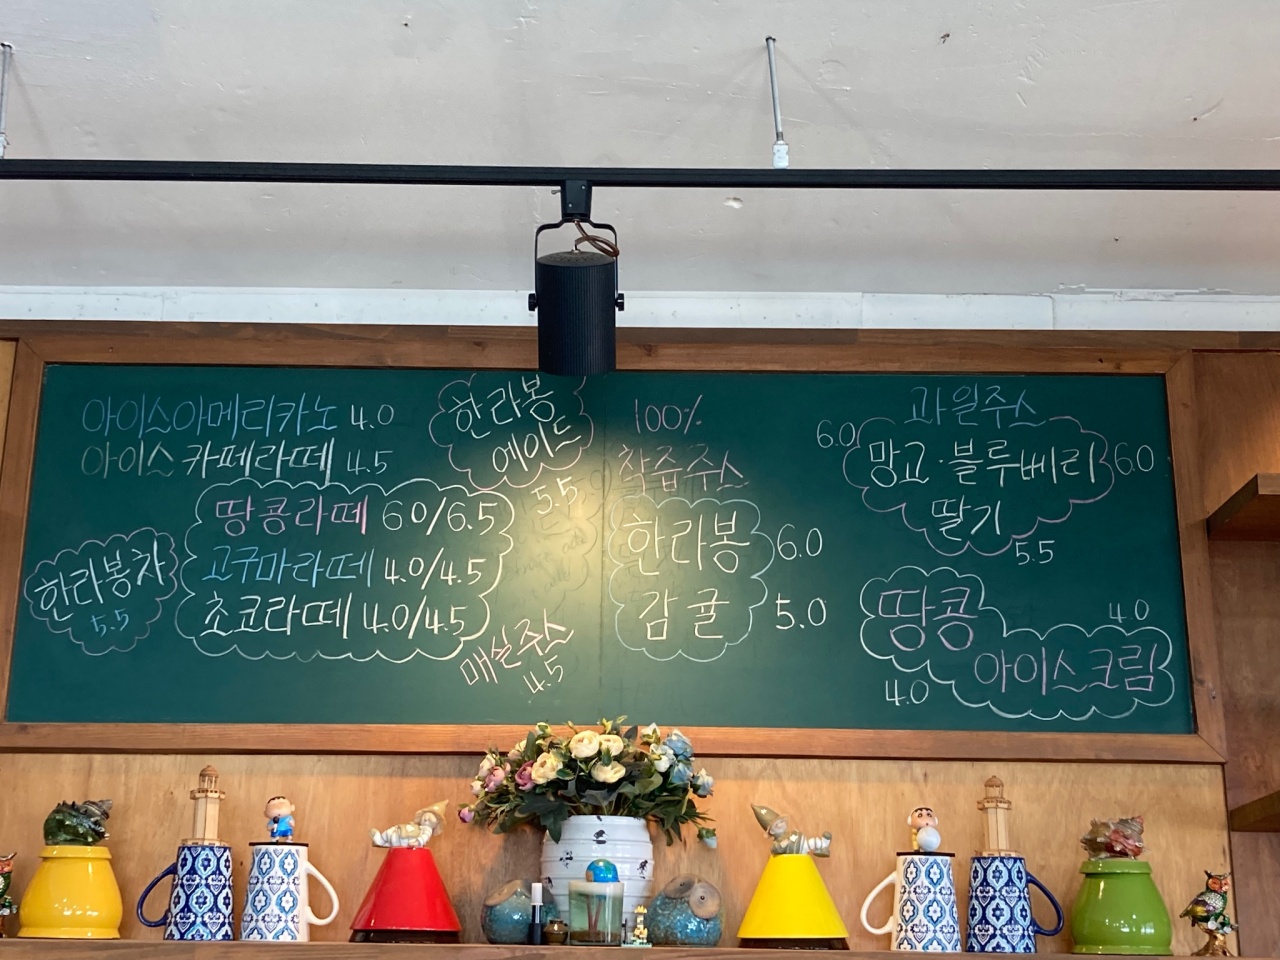 아이스아메리카노 4.0
아이스 카페라떼 4.5
땅콩라떼 6.0/6.5
고구마라떼 4.0/4.5
초코라떼 4.0/4.5
한라봉차
5.5
한라봉
에이드
5.5
매실주스
4.5
100%
착즙주스
한라봉 6.0
감귤 5.0
과일주스
6.0 망고·블루베리 6.0
딸기
5.5
땅콩 4.0
아이스크림
4.0